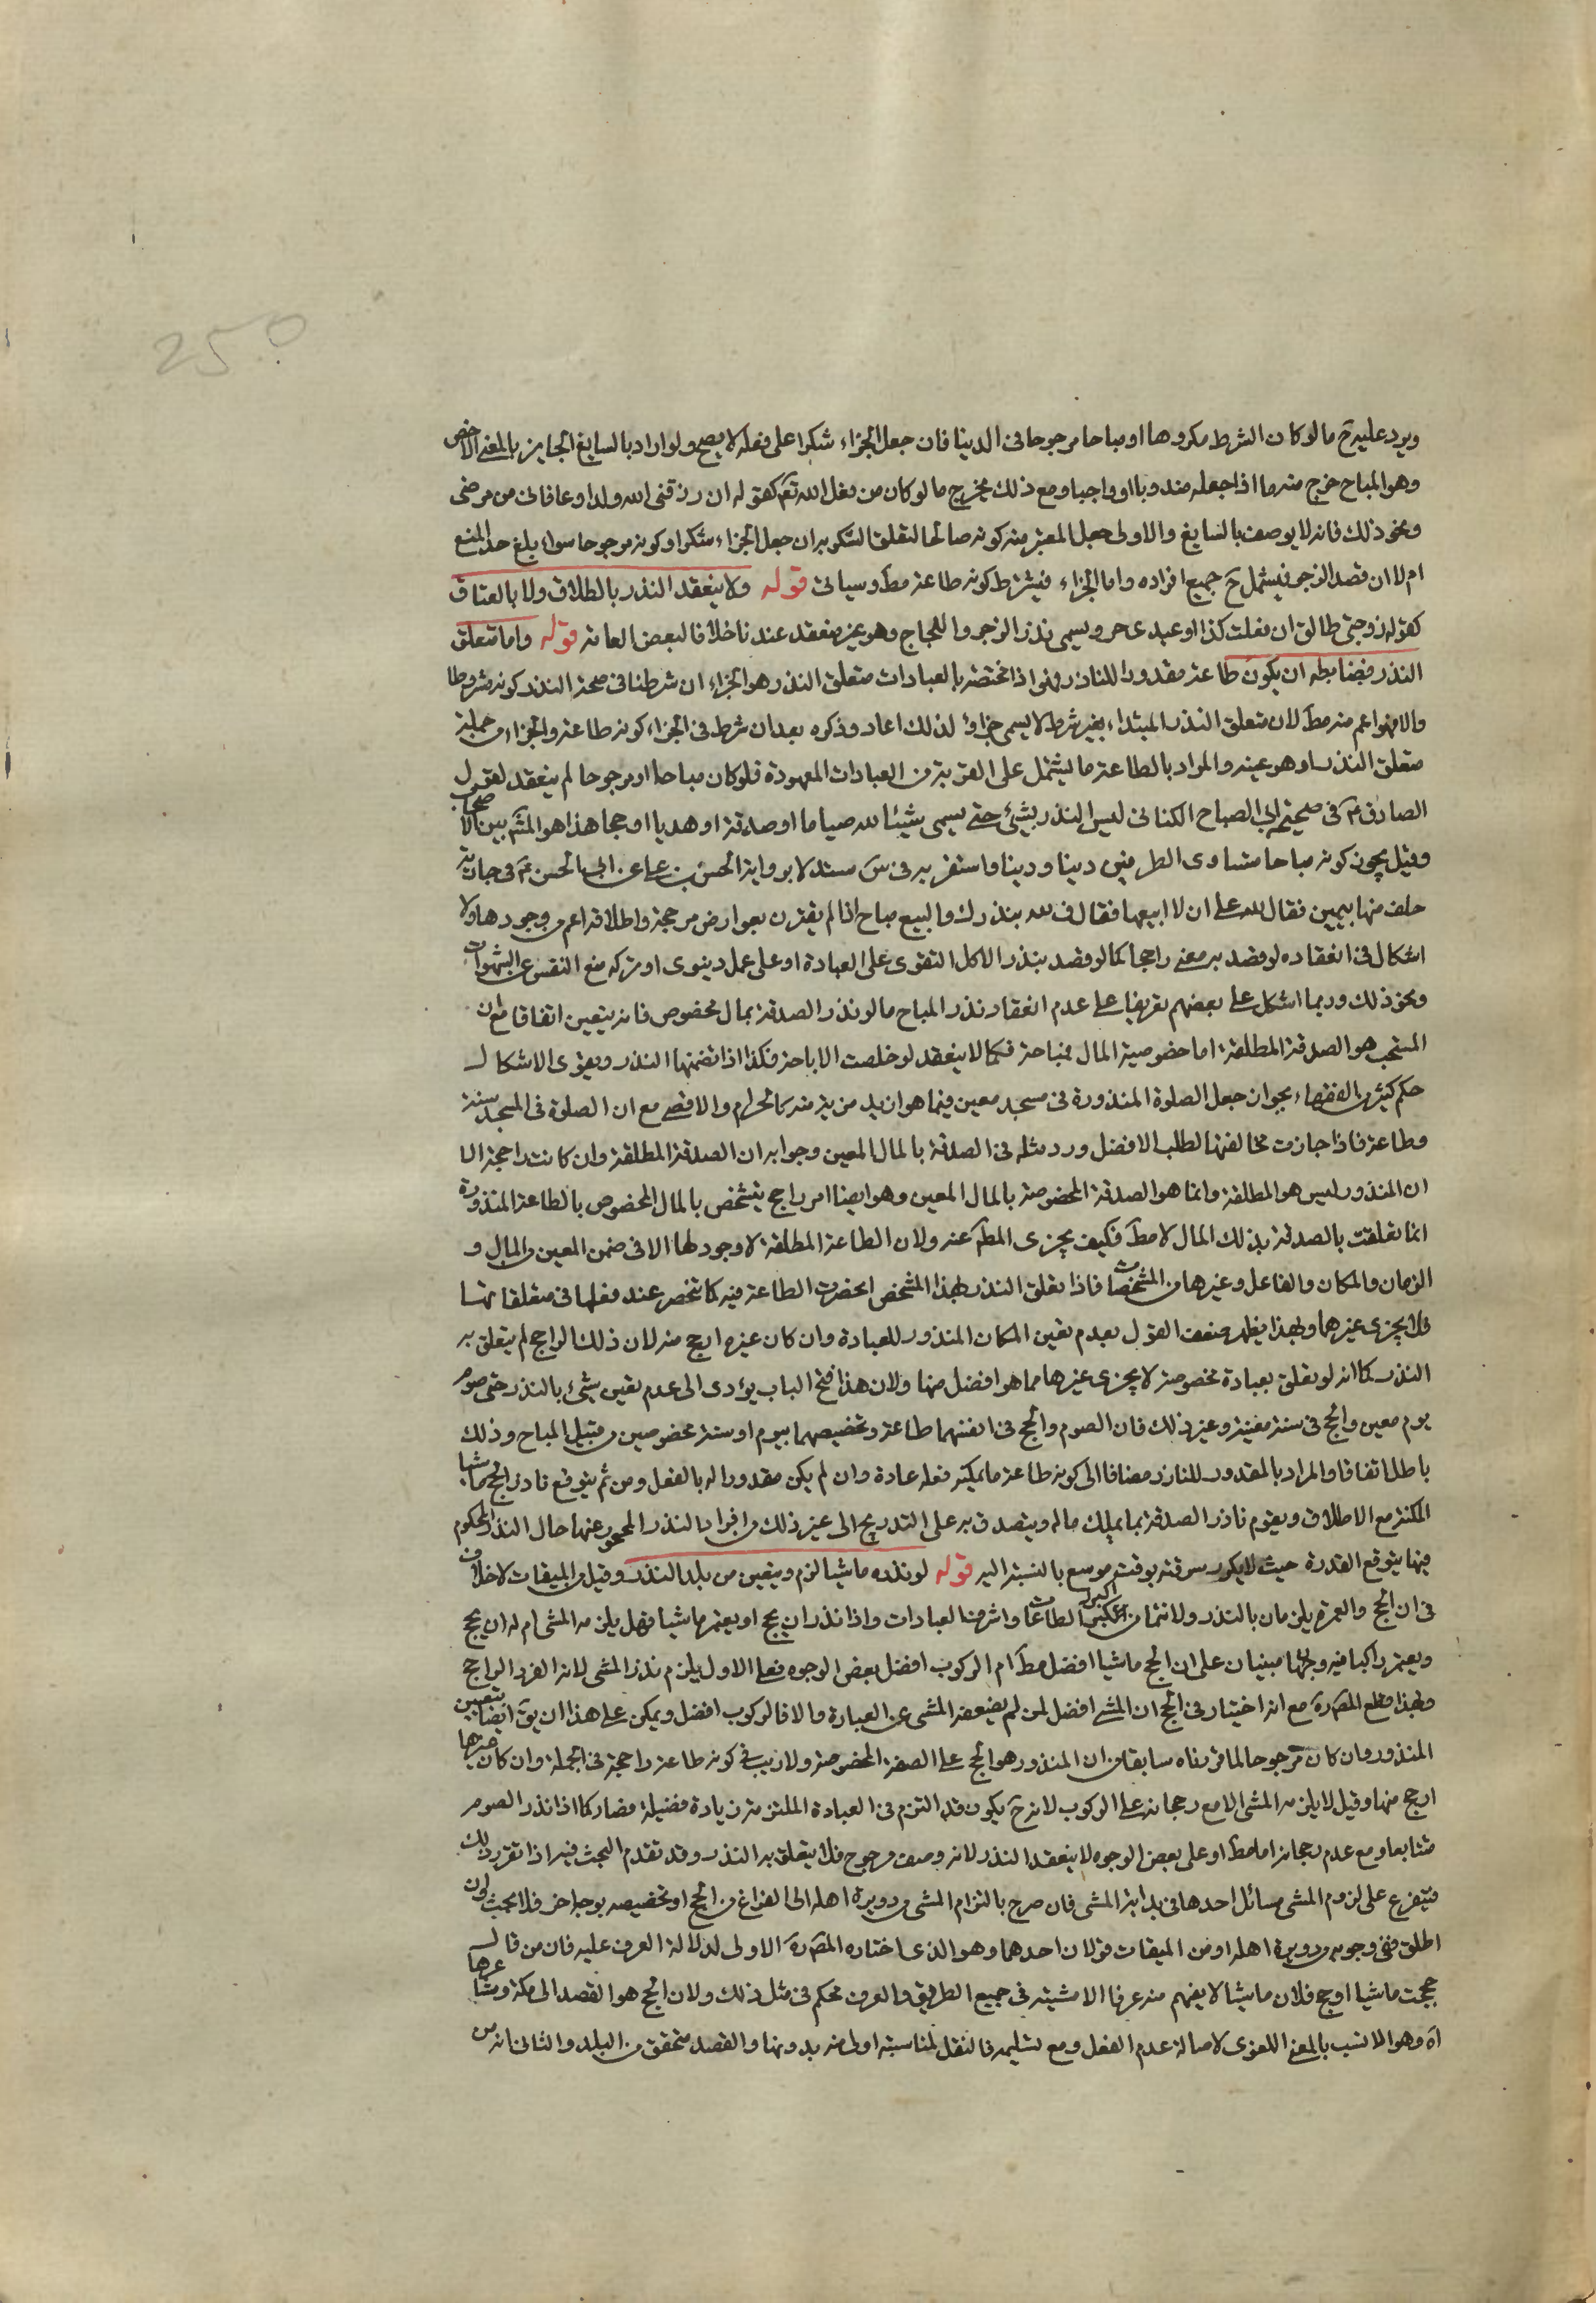 250
ويرد عليه ح ما لو كان الشرط مكروها او مباحا مرجوحا في الدنيا فان جعل الجزاء شكرا على فعله لا يصح ولو اراد بالسايغ الجايز بالمعنى الاخص
وهو المباح خرج منه ما اذا جعله مندوبا او واجبا ومع ذلك يخرج ما لو كان من فعل الله تع كقوله ان رزقني الله ولدا او عافاني من مرضى
ونحو ذلك فانه لا يوصف بالسايغ والاولى جعل المعتبر منه كونه صالحا لتعلق الشكر به ان جعل الجزاء شكرا وكونه مرجوحا سواء بلغ حد المنع
ام لا ان قصد الزجر فيشمل ح جميع افراده واما الجزاء فيشترط كونه طاعة مط وسياتى قوله ولا ينعقد النذر بالطلاق ولا بالعتاق
كقوله زوجتى طالق ان فعلت كذا او عبدى حر ويسمى نذر الزجر واللجاج وهو غير منعقد عندنا خلافا لبعض العامة قوله واما متعلق
النذر فضابطه ان يكون طاعة مقدورا للناذر فهى اذا مختصة بالعبادات متعلق النذر هو الجزاء ان شرطنا في صحة النذر كونه مشروطا
والا فهو اعم منه مط لان متعلق النذر المبتداء بغير شرط لا يسمى جزاؤ لذلك اعاد وذكره بعد ان شرط في الجزاء كونه طاعة والجزاء من جملة
متعلق النذر او هو عينه والمراد بالطاعة ما يشتمل على القربة من العبادات المعهودة فلو كان مباحا او مرجوحا لم ينعقد لقول
الصادق ع في صحيحة ابي الصباح الكناني ليس النذر بشئ حتى يسمى شيئا لله صياما او صدقة او هديا او حجا هذا هو المشه بين الاصحاب
وقيل يجوز كونه مباحا متساوى الطرفين دينا ودنيا واستقر به في س مستدلا برواية الحسن بن على عن ابي الحسن ع في جارية
حلف منها بيمين فقال لله على ان لا ابيعها فقال ف لله بنذرك والبيع مباح اذا لم يقترن بعوارض مرجحة واطلاقه اعم من وجودها ولا
اشكال في انعقاده لو قصد به معنى راجحا كما لو قصد بنذر الاكل التقوى على العبادة او على عمل دينوى او بتركه منع النفس عن الشهوات
ونحو ذلك وربما اشكل على بعضهم تفريعا على عدم انعقاد نذر المباح ما لو نذر الصدقة بمال مخصوص فانه يتعين اتفاقا مع ان
المستحب هو الصدقة المطلقة اما خصوصية المال فمباحة فكما لا ينعقد لو خلصت الاباحة فكذا اذا تضمنها النذر ويقوى الاشكال
حكم كثير من الفقهاء بجواز جعل الصلوة المنذورة في مسجد معين فيما هو ازيد مزية منه كالحرام والاقصى مع ان الصلوة في المسجد سنة
وطاعة فاذا جازت مخالفتها لطلب الافضل ورد مثله في الصدقة بالمال المعين وجوابه ان الصدقة المطلقة وان كانت راجحة الا
ان المنذور ليس هو المطلقة وانما هو الصدقة المخصوصة بالمال المعين وهو ايضا امر راجح يتشخص بالمال المخصوص بالطاعة المنذورة
انما تعلقت بالصدقة بذلك المال لا مط فكيف يجزى المط عنه ولان الطاعة المطلقة لا وجود لها الا في ضمن المعين والمال و
الزمان والمكان والفاعل وغيرها من المشخصات فاذا تعلق النذر بهذا المشخص انحصرت الطاعة فيه كما تنحصر عند فعلها في متعلقاتها
فلا يجزى غيرهما وبهذا يظهر ضعف القول بعدم تعين المكان المنذور للعبادة وان كان غيره ارجح منه لان ذلك الراجح لم يتعلق به
النذر كما انه لو تعلق بعبادة مخصوصة لا يجزى غيرها مما هو افضل منها ولان هذا فتح الباب يؤدى الى عدم تعين شئ بالنذر حتى صوم
يوم معين والحج في سنة معينة وغير ذلك فان الصوم والحج في انفسهما طاعة وتخصيصهما بيوم او سنة مخصوصين من قبيل المباح وذلك
باطل اتفاقا والمراد بالمقدور للناذر مضافا الى كونه طاعة ما يمكنه فعله عادة وان لم يكن مقدورا له بالفعل ومن ثم يتوقع ناذر الحج ماشيا
المكنة مع الاطلاق ويقوم ناذر الصدقة بما يملك ماله ويتصدق به على التدريج الى غير ذلك من افراد النذر المحوث عنها حال النذر المحكوم
فيها بتوقع القدرة حيث لا يكون وقته بوقت موسع بالنسبة اليه قوله لو نذره ماشيا لزم ويتعين من بلد النذر وقيل من الميقات لا خلاف
في ان الحج والعمرة يلزمان بالنذر ولانهما من اكبر الطاعات واشرف العبادات واذا نذر ان يحج او يعتمر ماشيا فهل يلزمه المشى ام له ان يحج
ويعتمر راكبا فيه وجهان مبنيان على ان الحج ماشيا افضل مط ام الركوب افضل بعض الوجوه فعلى الاول يلزم نذر المشى لانه الفرد الراجح
وبهذا قطع المصره مع انه اختيار في الحج ان المشى افضل لمن لم يضعفه المشى عن العبادة والا فالركوب افضل ويمكن على هذا ان يق ايضا بتعيين
المنذور وان كان مرجوحا لما قررناه سابقا من ان المنذور هو الحج على الصفة المخصوصة ولا ريب في كونه طاعة راجحة في الجملة وان كان غيرها
ارجح منها وقيل لا يلزمه المشى الا مع رجحانه على الركوب لانه ح يكون قد التزم في العبادة الملتزمة زيادة فضيلة فصار كما اذا نذر الصوم
متتابعا ومع عدم رجحانه اما مط او على بعض الوجوه لا ينعقد النذر لانه وصف مرجوح فلا يتعلق به النذر وقد تقدم البحث فيه اذا تقرر ذلك
فيتفرع على لزوم المشى مسائل احدها في بداية المشى فان صرح بالتزام المشى من دويرة اهله الى الفراغ من الحج او تخصيصه بوجه اخر فلا بحث ولو
اطلق ففي وجوبه من دويرة اهله او من الميقات قولان احدهما وهو الذى اختاره المصره الاولى لدلالة العرف عليه فان من قال
حججت ماشيا او حج فلان ماشيا لا يفهم منه عرفا الا مشيته في جميع الطريق والعرف محكم في مثل ذلك ولان الحج هو القصد الى مكة ومشاعرها
اه وهو الانسب بالمعنى اللغوى لاصالة عدم النقل ومع تسليمه فالنقل لمناسبة اولى منه بدونها والقصد متحقق من البلد والثاني انه من